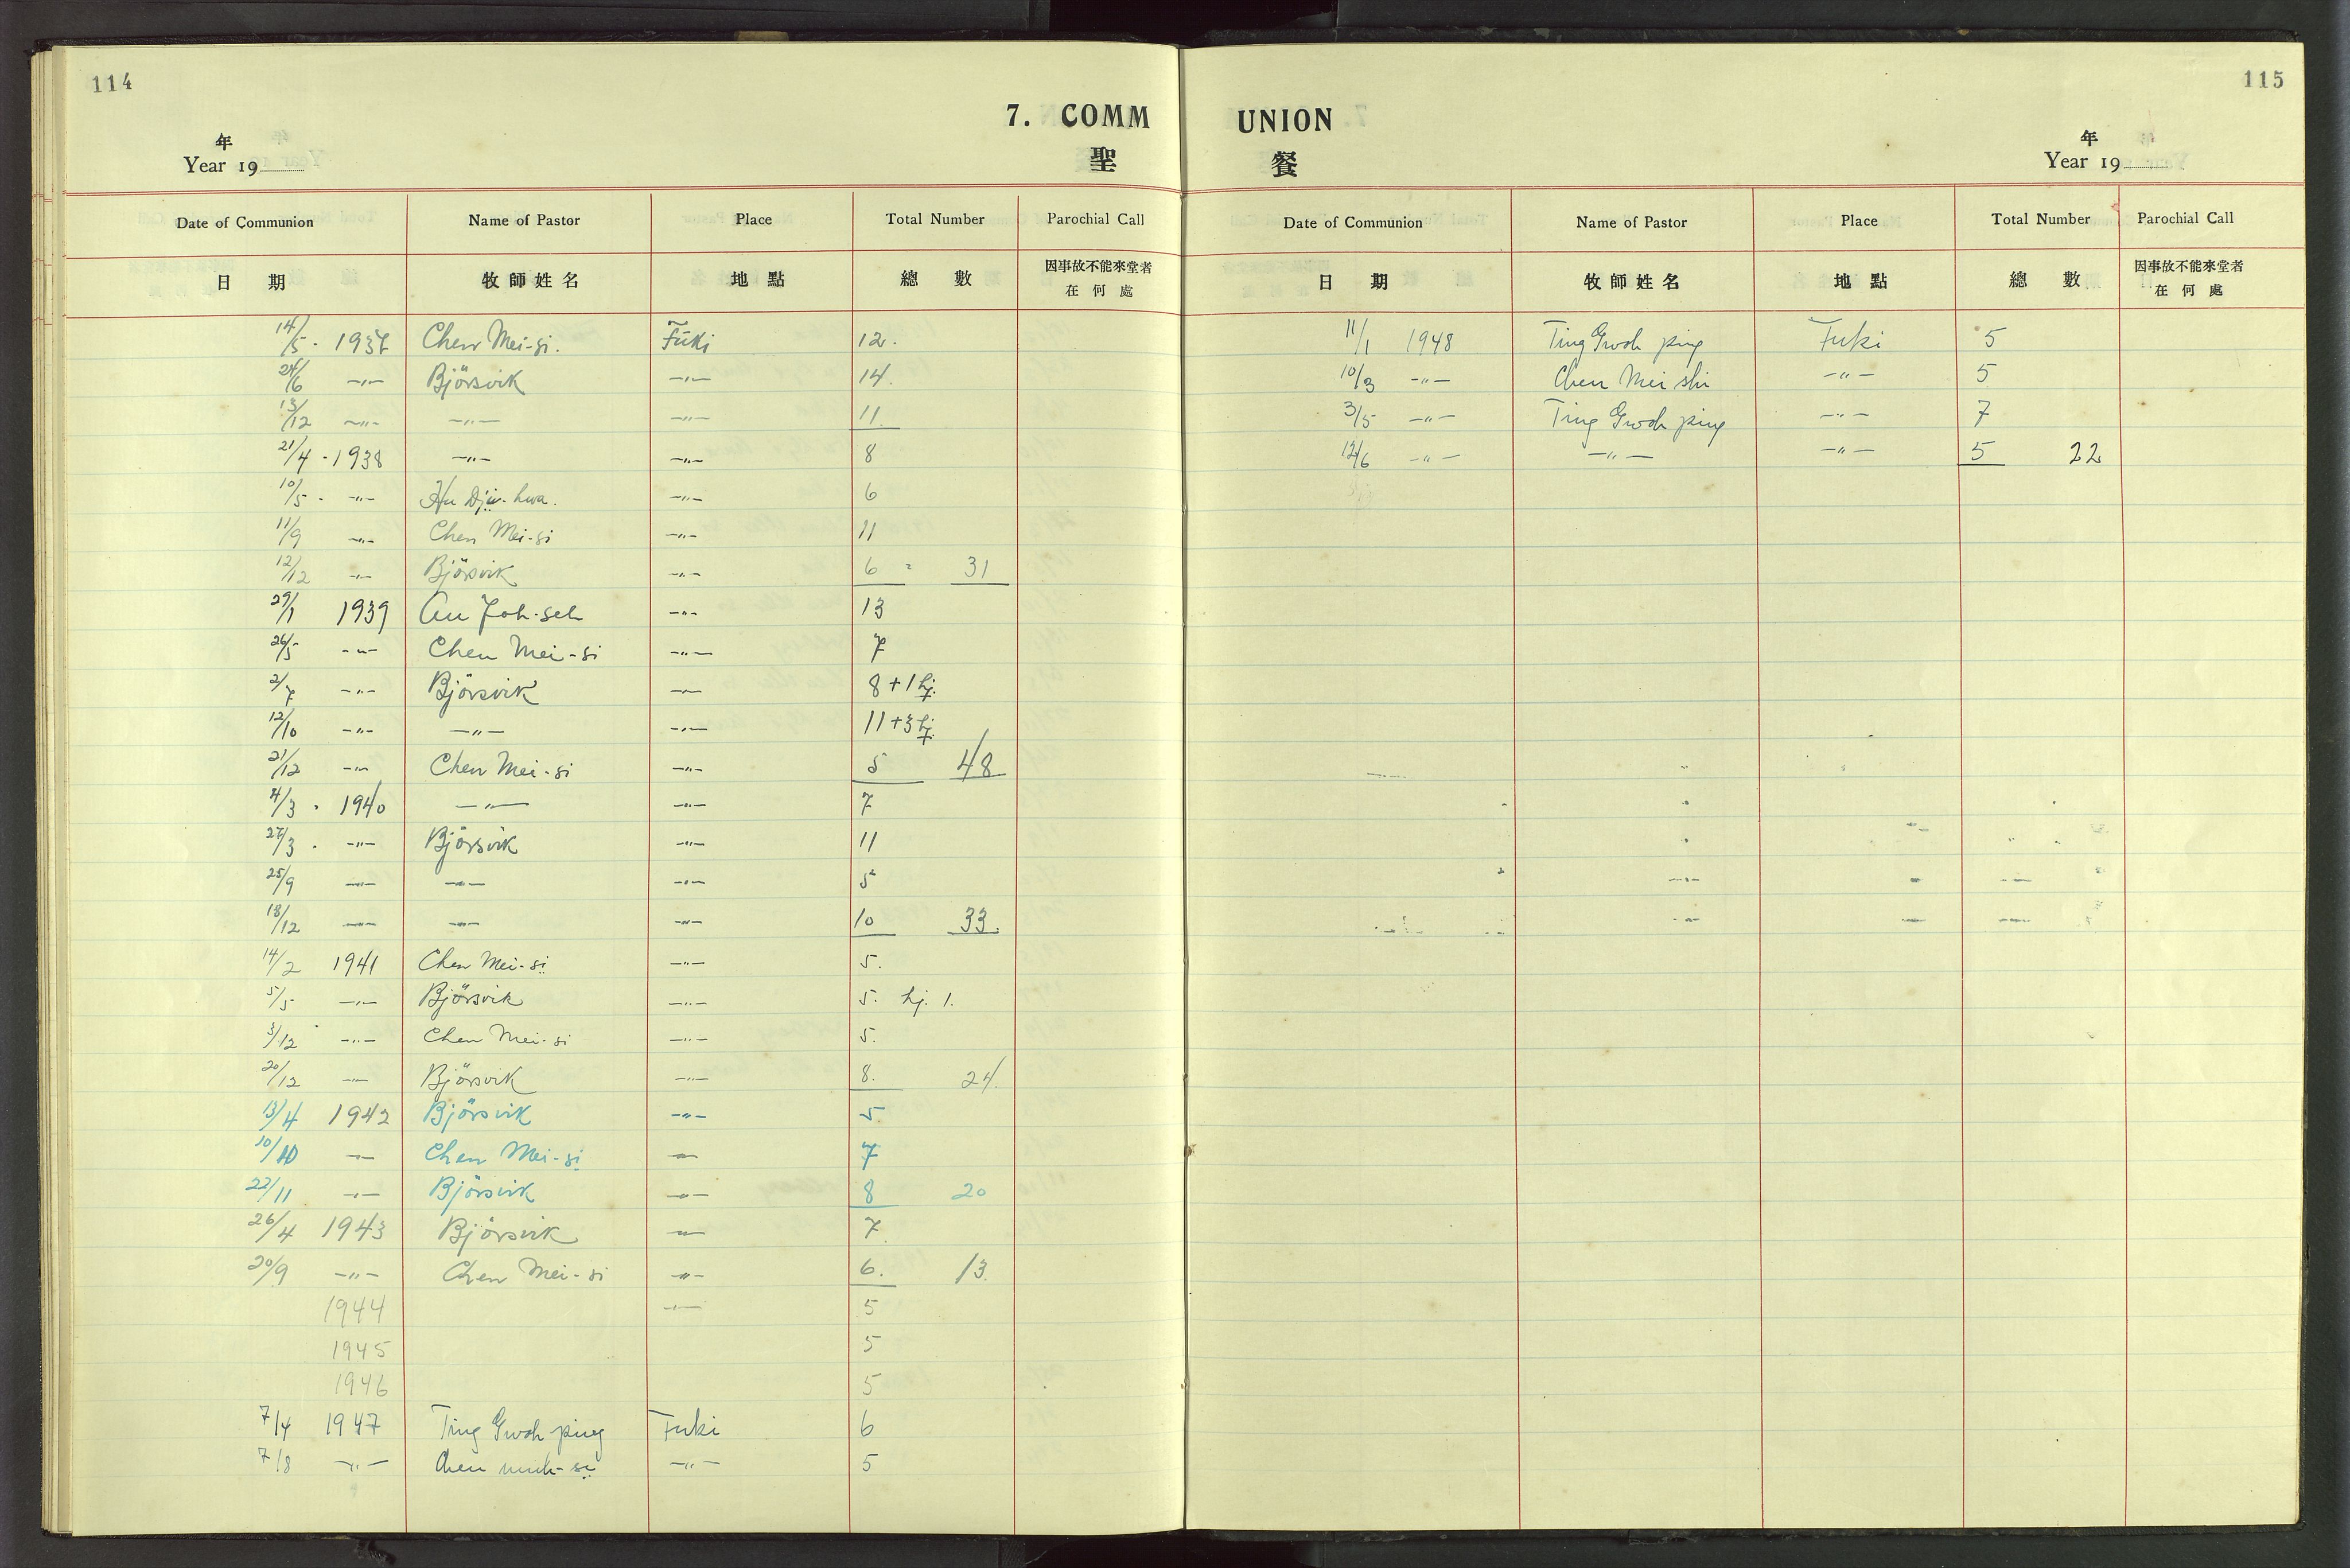 114
7. COMM
年
Year 19
聖
Date of Communion Name of Pastor Place Total Number Parochial Call
日 期 牧師姓名 地點 總數 因事故不能來堂者
在何處
14/5 · 1937 Chen Mei-si. Fuki 12.
24/6 -"- Björsvik -"- 14.
13/12 -"- -"- -"- 11.
21/4 · 1938 -"- -"- 8
10/5 · -"- Hu Djü-hwa. -"- 6
11/9 -"- Chen Mei-si -"- 11
12/12 -"- Björsvik -"- 6 = 31
29/1 1939 -"- 13
26/5 -"- Chen Mei-si -"- 7
2/7 -"- Björsvik -"- 8+1 hj.
12/10 -"- -"- -"- 11+3 hj.
21/12 -"- Chen Mei-si -"- 5 48
4/3 · 1940 -"- -"- 7
27/3 · -"- Björsvik -"- 11
25/9 -"- -"- -"- 5
18/12 -"- -"- -"- 10 33.
14/2 1941 Chen Mei-si -"- 5.
5/5 -"- Björsvik -"- 5. hj. 1.
3/12 -"- Chen Mei-si -"- 5.
20/12 -"- Björsvik -"- 8. 24.
13/4 1942 Björsvik -"- 5
10/10 -"- Chen Mei-si -"- 7
22/11 -"- Björsvik -"- 8 20
26/4 1943 Björsvik -"- 7.
20/9 -"- Chen Mei-si -"- 6. 13.
1944 -"- 5
1945 5
1946 5
7/4 1947 Ting Gwoh ping Fuki 6
7/8 -"- Chen -"- 5
115
UNION
年
Year 19
餐
Date of Communion Name of Pastor Place Total Number Parochial Call
日 期 牧師姓名 地點 總數 因事故不能來堂者
在何處
11/1 1948 Ting Gwoh ping Fuki 5
10/3 -"- Chen Mei shi -"- 5
3/5 -"- Ting Gwoh ping -"- 7
12/6 -"- -"- -"- 5 22